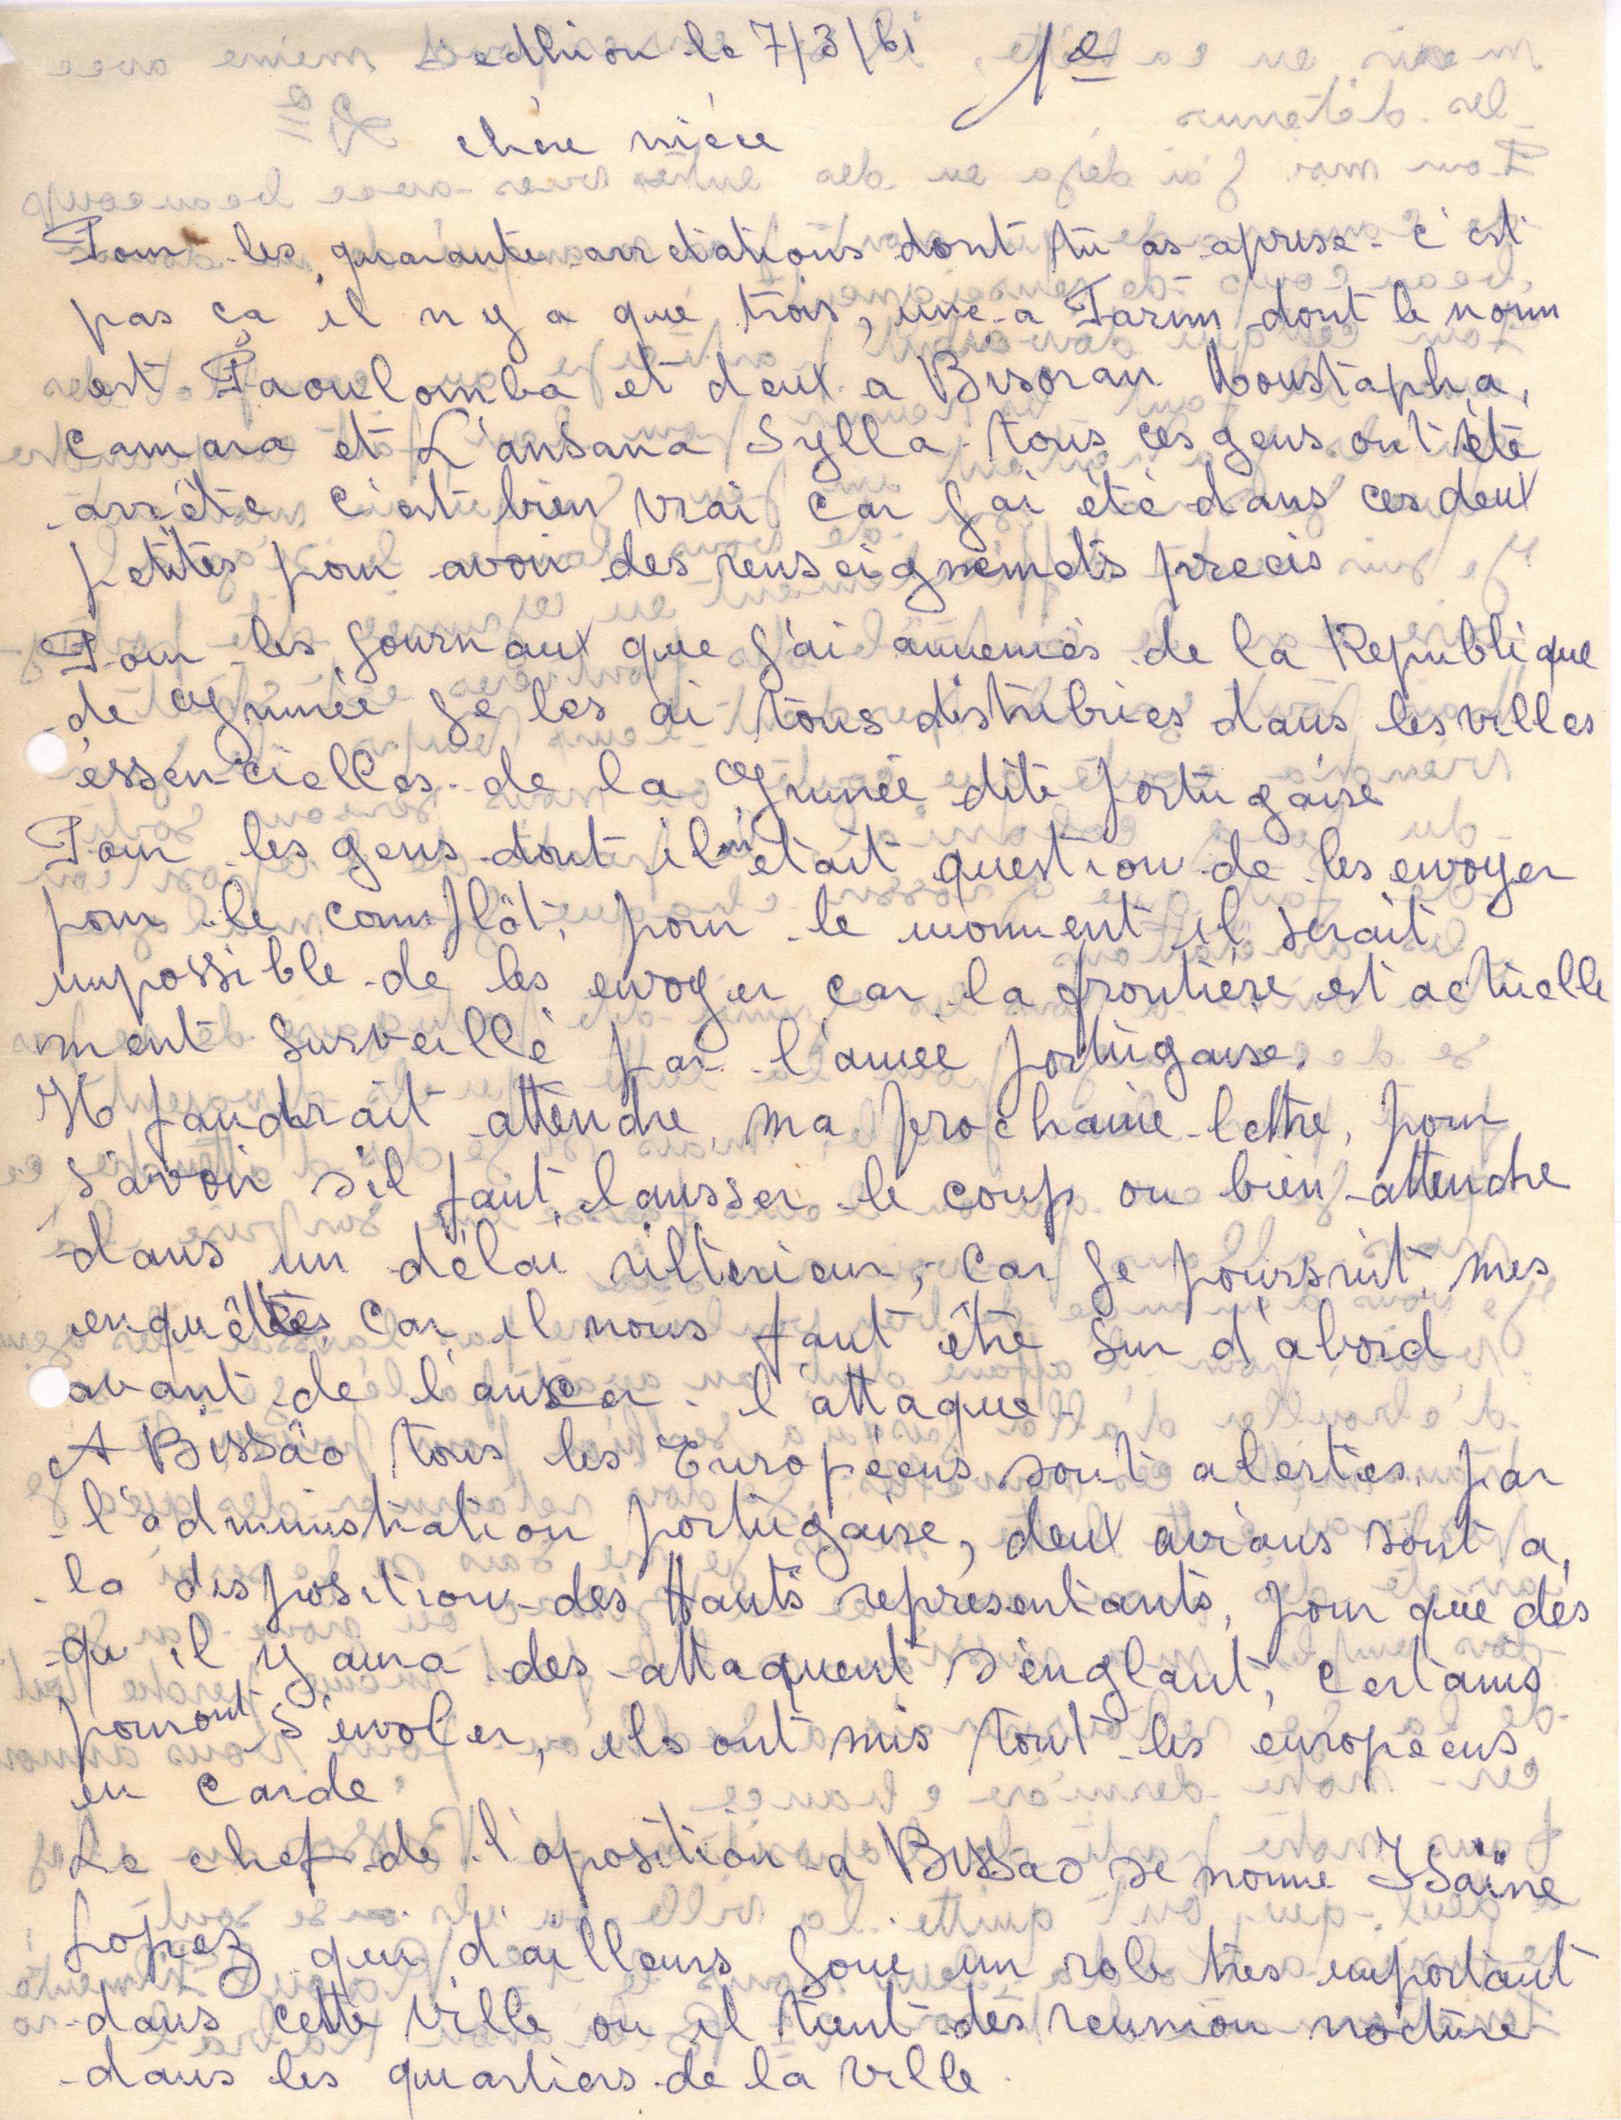 Sedhiou le 7/3/61 1e
chère nièce
Pour les quarante arretations dont tu as aprise c'est
pas ça il n y a que trois, une a Farim dont le nom
est Faoulomba et deux a Bisoran Moustapha,
camara et L'ansana Sylla tous ces gens ont été
arrété c'est bien vrai car j'ai été dans ces deux
petites pour avoir des renseignements precis
Pour les journaux que j'ai ammenés de la Republique
de Guinée je les ai tous distribués dans les villes
éssencielles de la Guinée dite portugaise
Pour les gens dont il était question de les envoyer
pour le complôt, pour le moment il serait
impossible de les envoyer car la frontière est actuelle
ment surveillé par l'armée portugaise.
Il faudrait attendre ma prochaine lettre, pour
savoir s'il faut lansser le coup ou bien attendre
dans un délai ultérieur, car je poursuit mes
enquêttes car il nous faut être sur d'abord
avant de l'anser l'attaque
A Bissão tous les Européens sont alertés par
l'administration portugaise, deux avions sont a
la disposition des Hauts représentants, pour que dés
qu'il y aura des attaquent s'englant, certains
pouront s'envoler, ils ont mis tout les européens
en carde
Le chef de l'oposition a Bissao se nomme Isaïne
Lopez qui d'ailleurs joue un role tres important
dans cette ville ou il tient des reunion nocture
dans les quartiers de la ville.